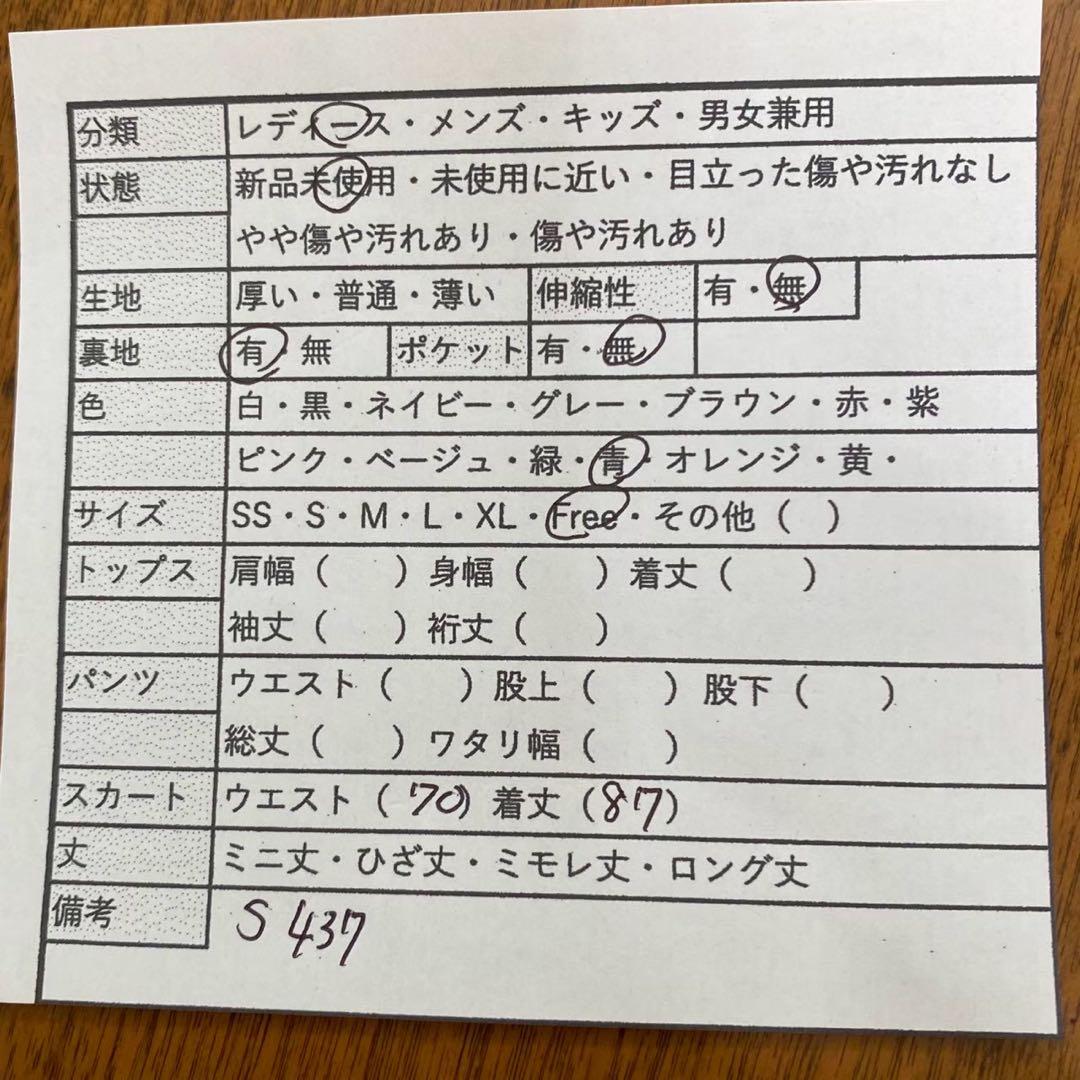 分類 レディース・メンズ・キッズ・男女兼用
状態 新品未使用・未使用に近い・目立った傷や汚れなし
やや傷や汚れあり・傷や汚れあり
生地 厚い・普通・薄い 伸縮性 有・無
裏地 有・無 ポケット 有・無
色 白・黒・ネイビー・グレー・ブラウン・赤・紫
ピンク・ベージュ・緑・青・オレンジ・黄・
サイズ SS・S・M・L・XL・Free・その他（ ）
トップス 肩幅（ ）身幅（ ）着丈（ ）
袖丈（ ）裄丈（ ）
パンツ ウエスト（ ）股上（ ）股下（ ）
総丈（ ）ワタリ幅（ ）
スカート ウエスト（70）着丈（87）
丈 ミニ丈・ひざ丈・ミモレ丈・ロング丈
備考 S 437